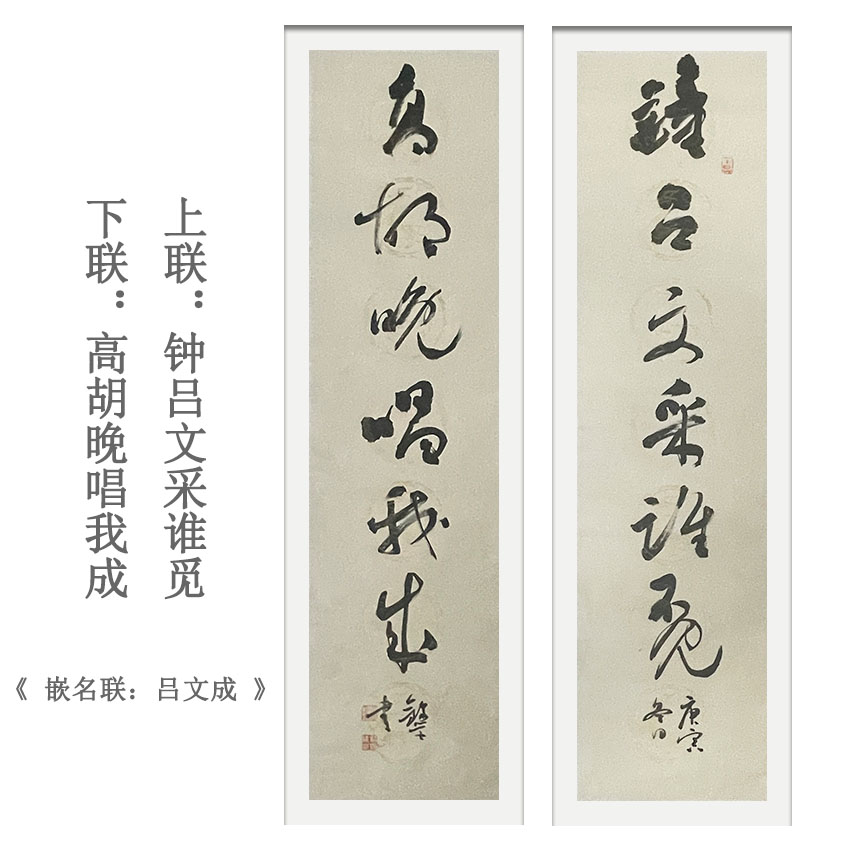 上联：钟吕文采谁觅
下联：高胡晚唱我成
《 嵌名联：吕文成 》
鐘吕文采誰覔
庚寅
冬日
高胡晚唱我成
书